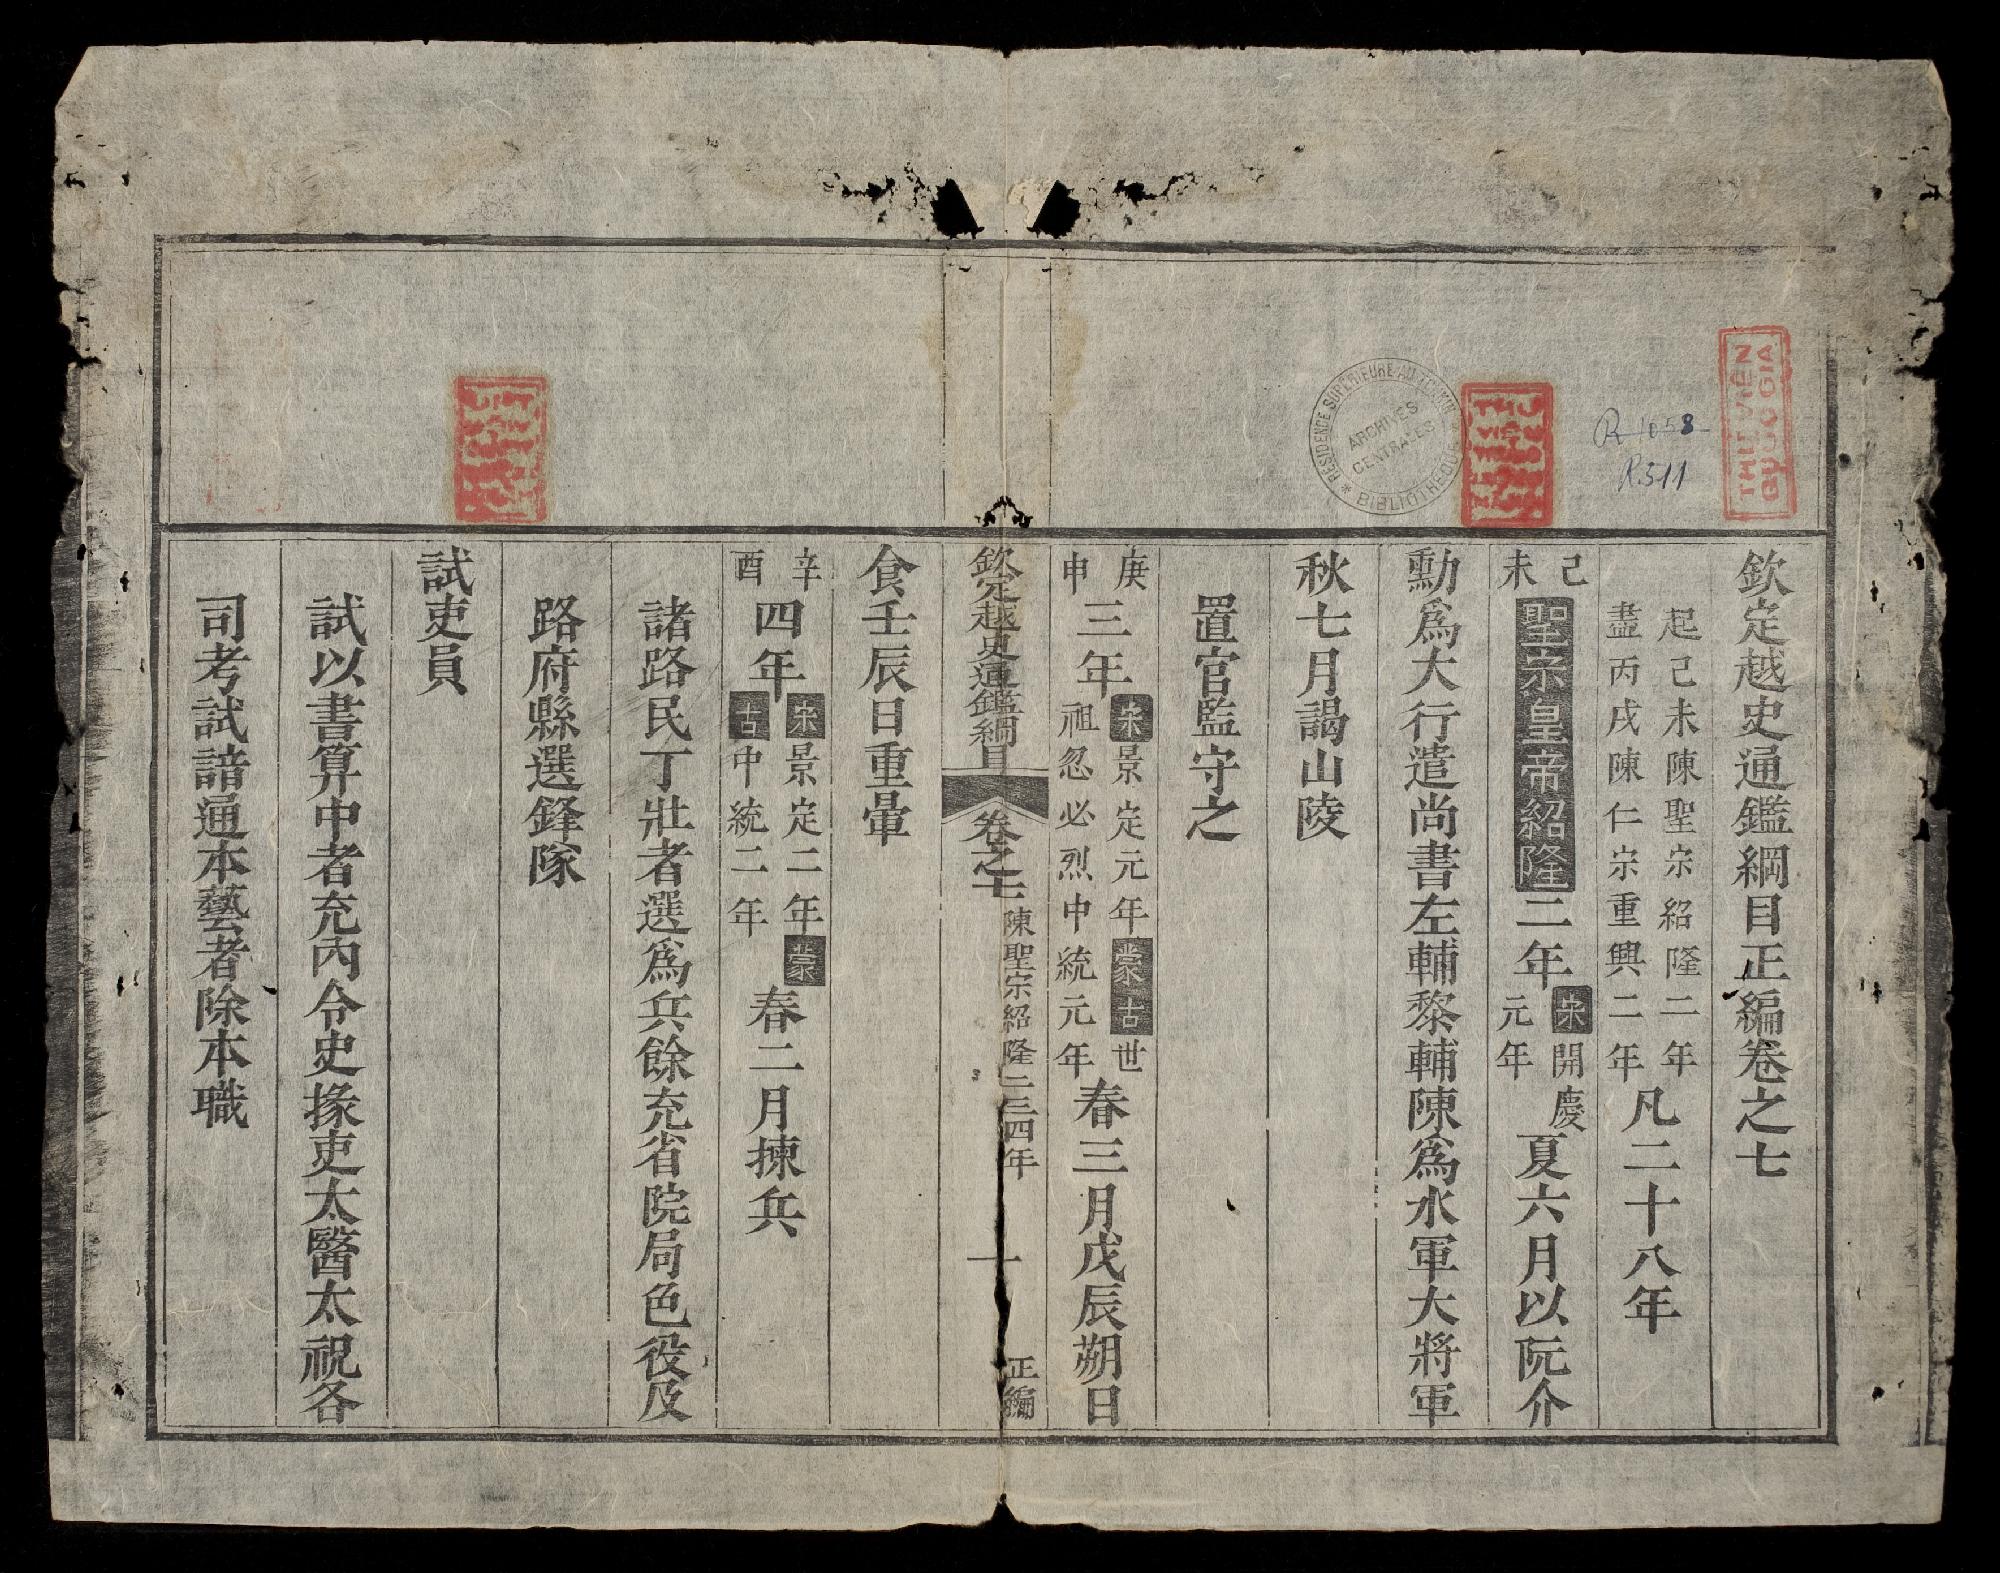 欽定越史通鑑綱目正編卷之七
起己未陳聖宗紹隆二年
盡丙戌陳仁宗重興二年
凡二十八年
己未
聖宗皇帝紹隆二年
宋開慶元年
夏六月以阮介
勳爲大行遣尚書左輔黎輔陳爲水軍大將軍
秋七月謁山陵
置官監守之
庚申
三年
宋景定元年蒙古世
祖忽必烈中統元年
春三月戊辰朔日
欽定越史通鑑綱目
卷之七
陳聖宗紹隆二三四年
一
正編
食壬辰日重暈
辛酉
四年
宋景定二年蒙
古中統二年
春二月揀兵
諸路民丁壯者選爲兵餘充省院局色役及
路府縣選鋒隊
試吏員
試以書算中者充內令史掾吏太醫太祝各
司考試諳通本藝者除本職
RESIDENCE SUPERIEURE AU TONKIN
ARCHIVES
CENTRALES
* BIBLIOTHEQUE *
R 1058
R.511
THƯ VIỆN
QUỐC GIA